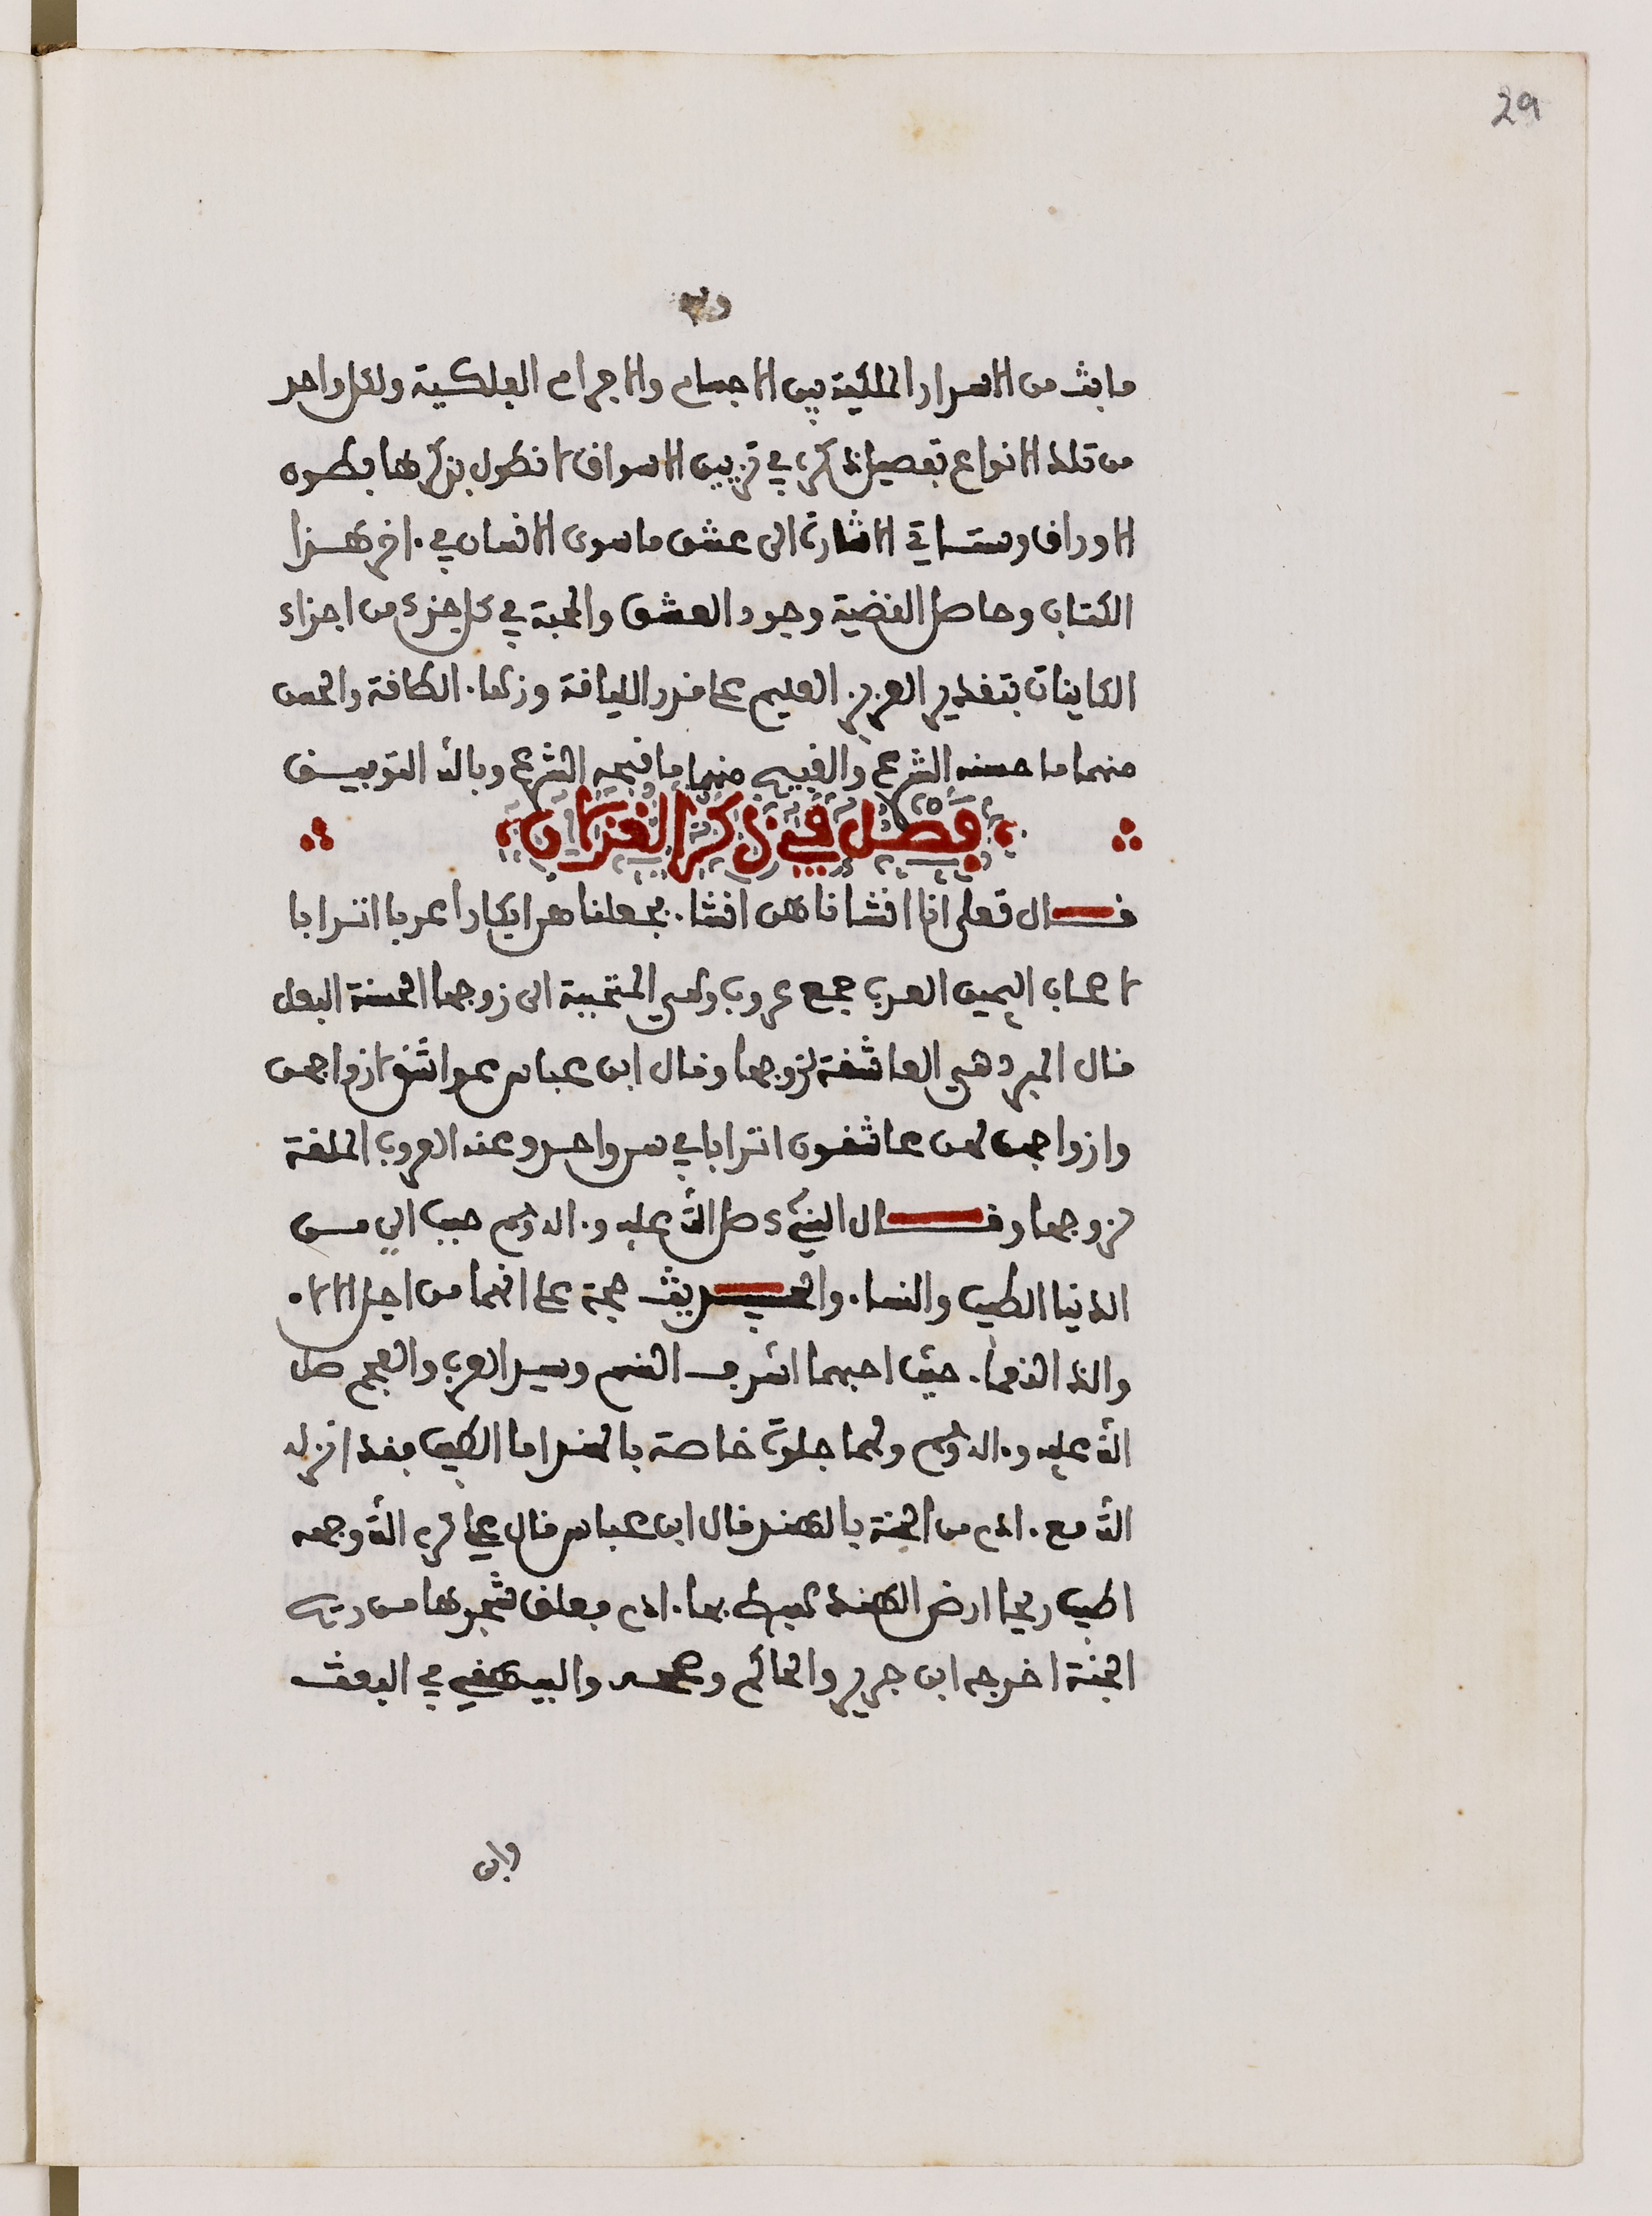 29
ما بث من الاسرار الملكية بين الاجسام والاجرام الفلكية ولكل واحد
من تلك الانواع تفصيل ذكر في تزيين الاسواق لا نطول بذكرها بطون
الاوراق وستاتي الاشارة الى عشق ما سوى الانسان في ءاخر هذا
الكتاب وحاصل القضية وجود العشق والمحبة في كل جزء من اجزاء
الكاينات بتقدير العزيز العليم على قدر اللياقة وزكاء الطاقة والحسن
منهما ما حسنه الشرع والقبيح منهما ما قبحه الشرع وبالله التوفيق
فصل في ذكر الغزلان
قال تعلى انا انشاناهن انشاء فجعلناهن ابكارا عربا اترابا
لاصحاب اليمين العرب جمع عروب وهي المتحببة الى زوجها الحسنة البعل
قال المبرد هي العاشقة لزوجها وقال ابن عباس عواشق لازواجهن
وازواجهن لهن عاشقون اترابا في سن واحد وعنه العروب الملقة
لزوجها وقال النبيء صلى الله عليه وءاله وسلم حبب الي من
الدنيا الطيب والنساء والحديث حجة على انهما من اجل الالاء
والذ النعماء حيث احبهما اشرف النسم وسيد العرب والعجم صلى
الله عليه وءاله وسلم ولهما جلوة خاصة بالهند اما الطيب فقد انزله
الله مع ءادم من الجنة بالهند قال ابن عباس قال علي كرم الله وجهه
اطيب ريحا ارض الهند هبط بها ءادم فعلق شجرها من ريح
الجنة اخرجه ابن جرير والحاكم وصححه والبيهقي في البعث
وابن